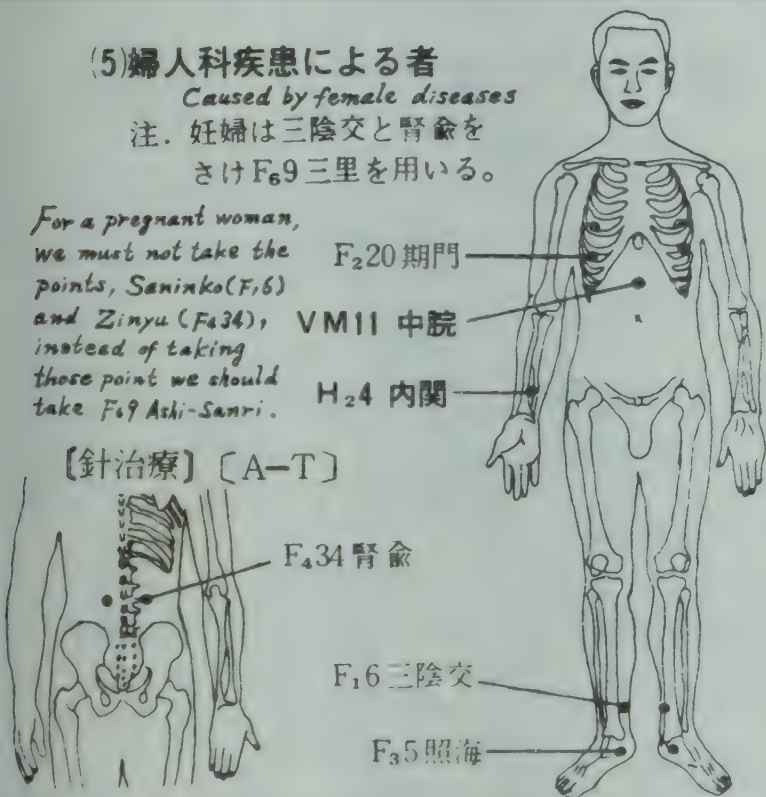 (5)婦人科疾患による者
Caused by female diseases
注. 妊婦は三陰交と腎兪を
さけF₆9三里を用いる。
For a pregnant woman,
we must not take the
points, Saninko(F₁6)
and Zinyu (F₄34),
instead of taking
those point we should
take F₆9 Ashi-Sanri.
F₂20 期門
VM11 中脘
H₂4 内関
[針治療] [A-T]
F₄34 腎兪
F₁6 三陰交
F₃5 照海